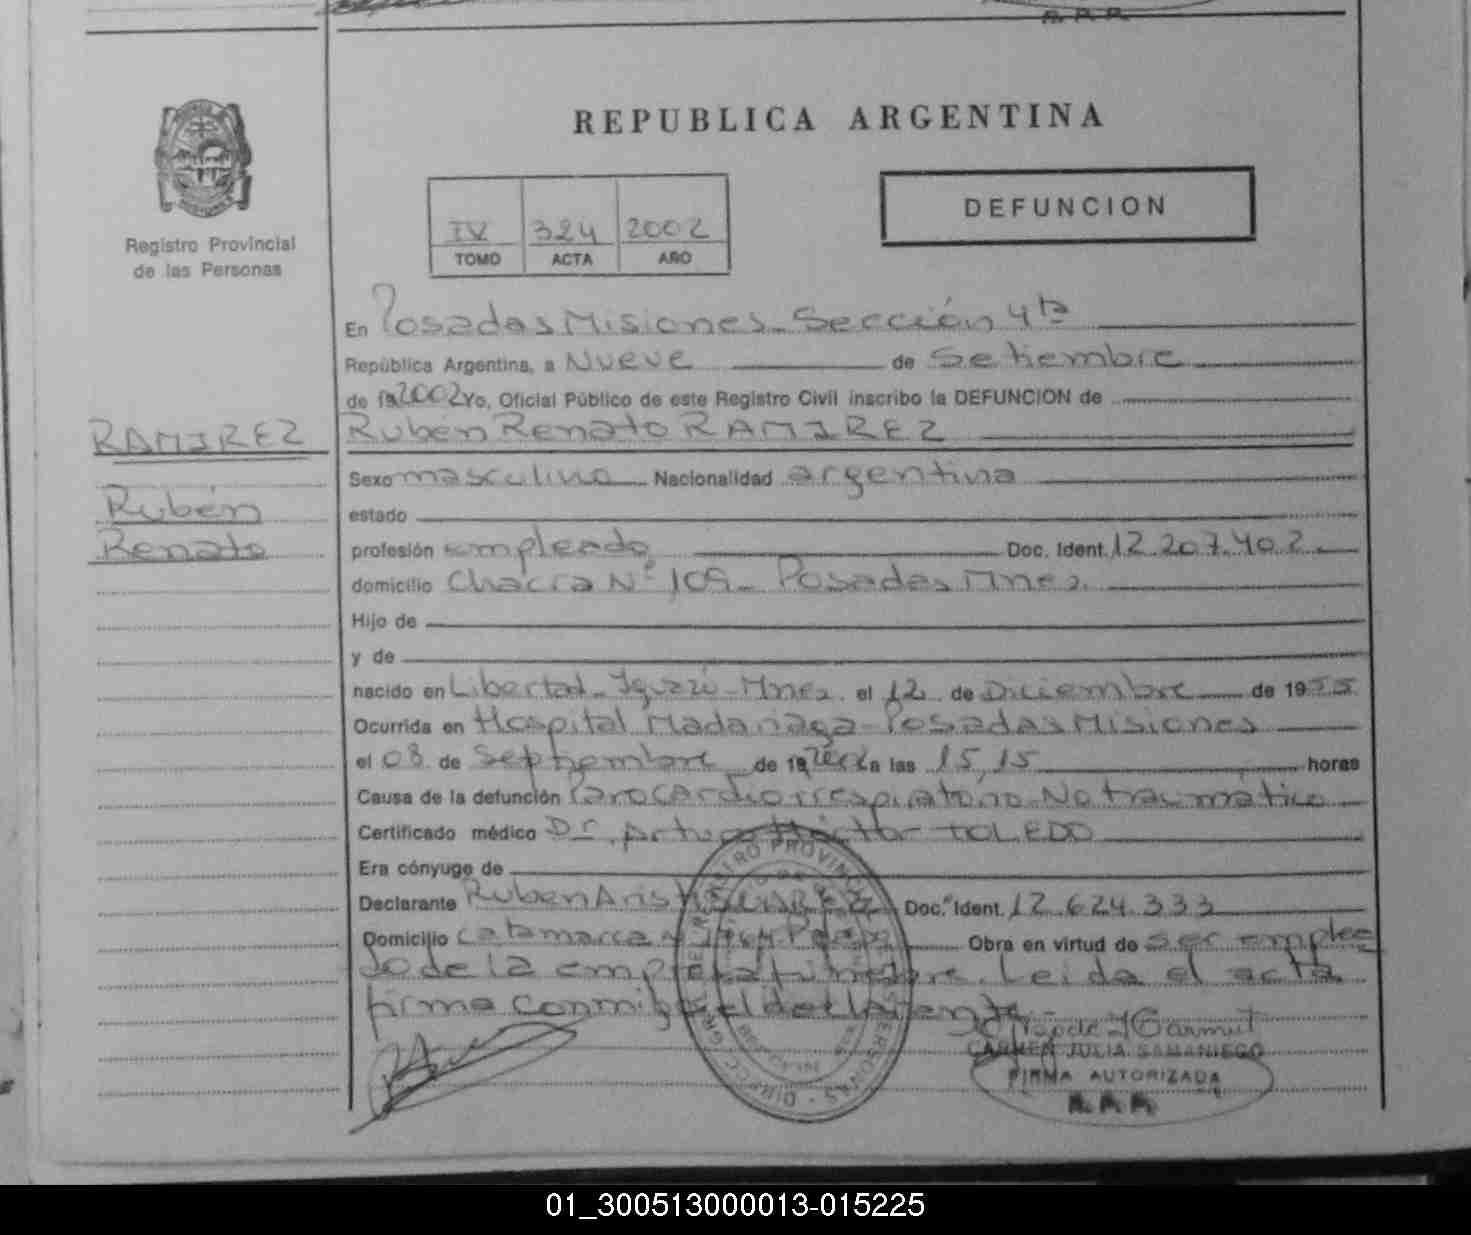 REPUBLICA ARGENTINA
Registro Provincial
de las Personas
IV 324 2002
TOMO ACTA AÑO
DEFUNCION
En Posadas Misiones Sección 4ta
República Argentina, a Nueve de Setiembre
de 19 2002 Yo, Oficial Público de este Registro Civil inscribo la DEFUNCION de
RAMIREZ
Rubén
Renato
Ruben Renato RAMIREZ
Sexo masculino Nacionalidad argentina
estado
profesión empleado Doc. Ident. 12.207.402
domicilio Chacra Nº 109 - Posadas Mnes.
Hijo de
y de
nacido en Libertad - Iguazú - Mnes. el 12 de Diciembre de 1955
Ocurrida en Hospital Madariaga - Posadas Misiones
el 08 de Septiembre de 19 2002 a las 15,15 horas
Causa de la defunción Paro cardiorrespiratorio No traumático
Certificado médico Dr. Arturo Héctor TOLEDO
Era cónyuge de
Declarante Ruben Doc. Ident. 12.624.333
Domicilio Catamarca Obra en virtud de ser emplea
do de la empresa fúnebre. Leída el acta
firma conmigo el declarante -
CARMEN JULIA SAMANIEGO
FIRMA AUTORIZADA
01_300513000013-015225